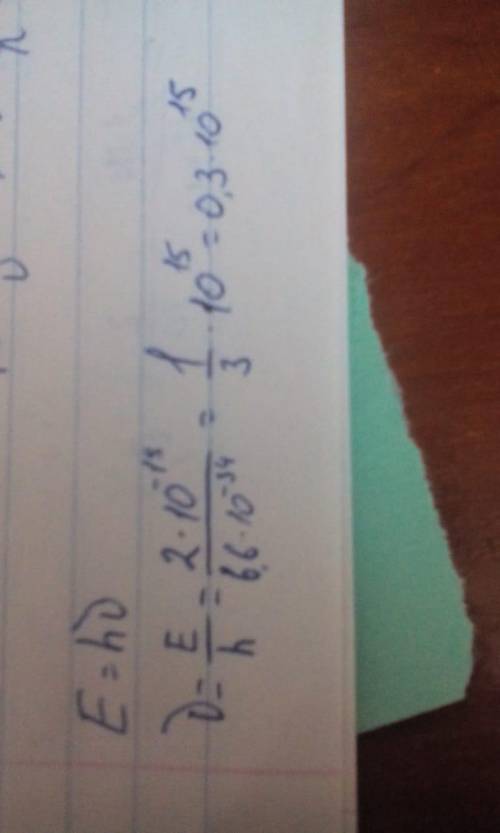 E = hν
ν = E/h = 2·10⁻¹⁹/6,6·10⁻³⁴ = 1/3·10¹⁵ = 0,3·10¹⁵